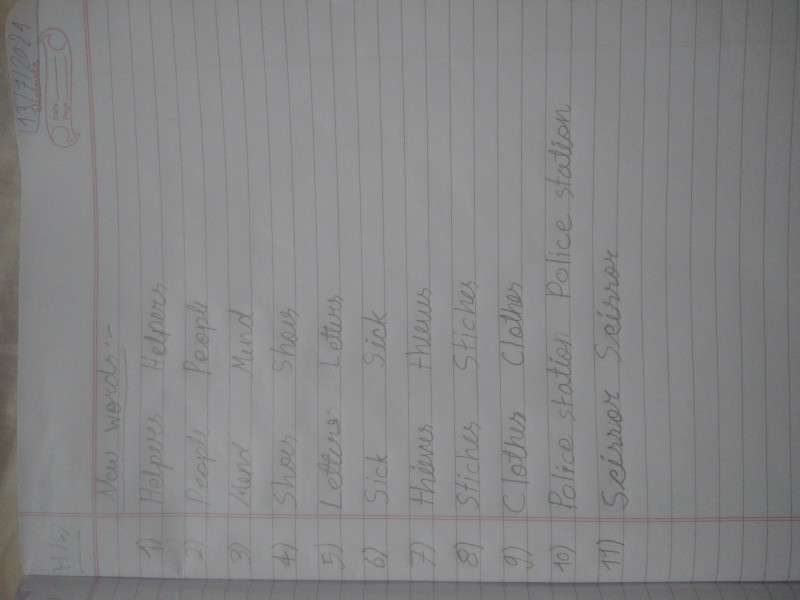 13/7/2021
H/W
New words:-
1) Helpers Helpers
2) People People
3) Mend Mend
4) Shoes Shoes
5) Letters Letters
6) Sick Sick
7) thieves thieves
8) Stiches Stiches
9) Clothes Clothes
10) Police station Police station
11) Scissor Scissor